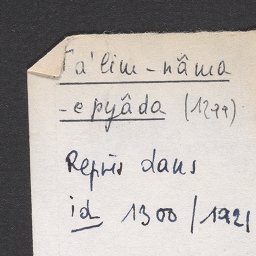 Ta'lim-nâma
-e pyâda (1299)
Repris dans
id 1300/1921